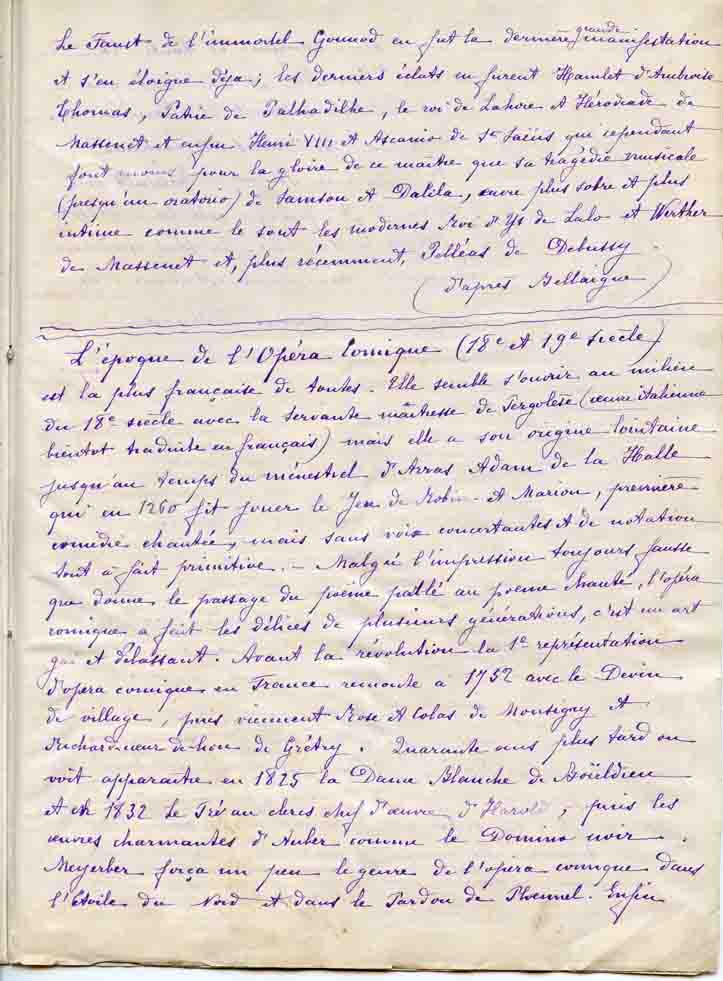 Le Faust de l'immortel Gounod en fut la dernière grande manifestation
et s'en éloigne déja ; les derniers éclats en furent Hamlet d'Ambroise
Thomas, Patrie de Palhadilhe, le roi de Lahore et Hérodiade de
Massenet et enfin Henri VIII et Ascanio de St Saëns qui cependant
font moins pour la gloire de ce maître que sa tragédie musicale
(presqu'un oratorio) de Samson et Dalila, œuvre plus sobre et plus
intime comme le sont les modernes Roi d'Ys de Lalo et Werther
de Massenet et, plus récemment, Pelléas de Debussy.
(d'après Bellaigue)
L'époque de l'Opéra Comique (18e et 19e siècle)
est la plus française de toutes. Elle semble s'ouvrir au milieu
du 18e siècle avec la Servante maîtresse de Pergolèse (œuvre italienne
bientot traduite en français) mais elle a son origine lointaine
jusqu'au temps du ménestrel d'Arras Adam de la Halle
qui en 1260 fit jouer le Jeu de Robin et Marion, première
comédie chantée, mais sans voix concertantes et de notation
tout à fait primitive. — Malgré l'impression toujours fausse
que donne le passage du poème parlé au poème chanté, l'opéra
comique a fait les délices de plusieurs générations, c'est un art
gai et délassant. Avant la révolution la 1e représentation
d'opera comique en France remonte à 1752 avec le Devin
de village, puis viennent Rose et Colas de Monsigny et
Richard-cœur-de-lion de Grétry. Quarante ans plus tard on
voit apparaitre en 1825 la Dame Blanche de Boïeldieu
et en 1832 Le Pré au clercs chef d'œuvre d'Harold, puis les
œuvres charmantes d'Auber comme le Domino noir.
Meyerber força un peu le genre de l'opera comique dans
l'Etoile du Nord et dans le Pardon de Ploermel. Enfin